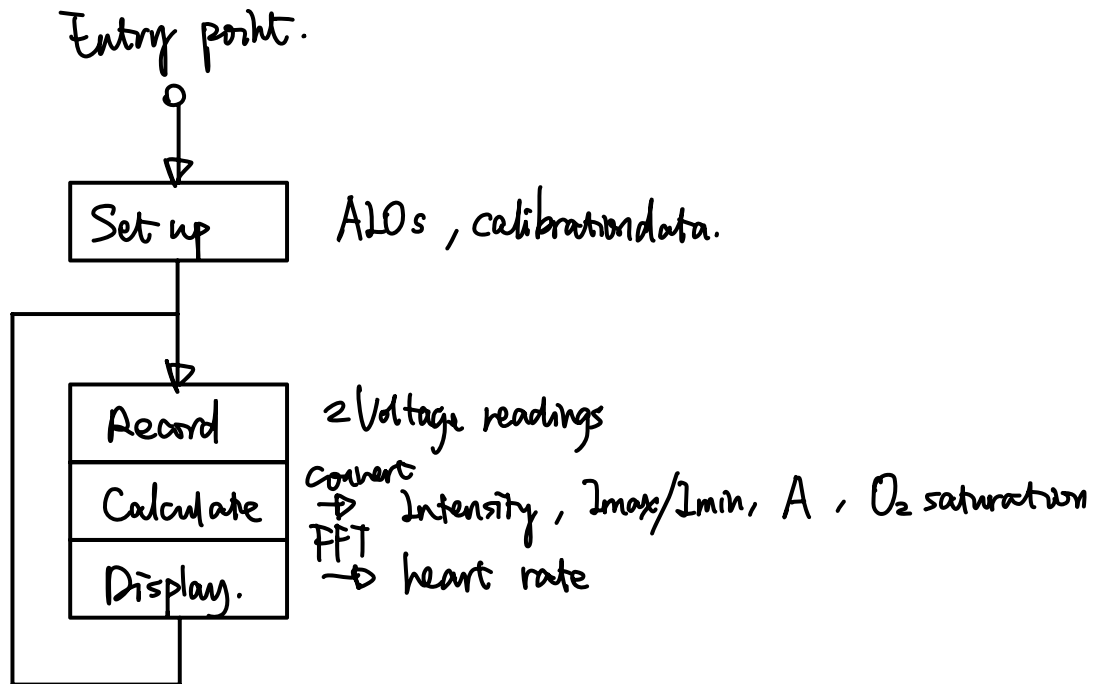 Entry point.
Set up
, calibration data.
Record
2 Voltage readings
Calculate
convert
→ Intensity, Imax/Imin, A, O₂ saturation
FFT
→ heart rate
Display.